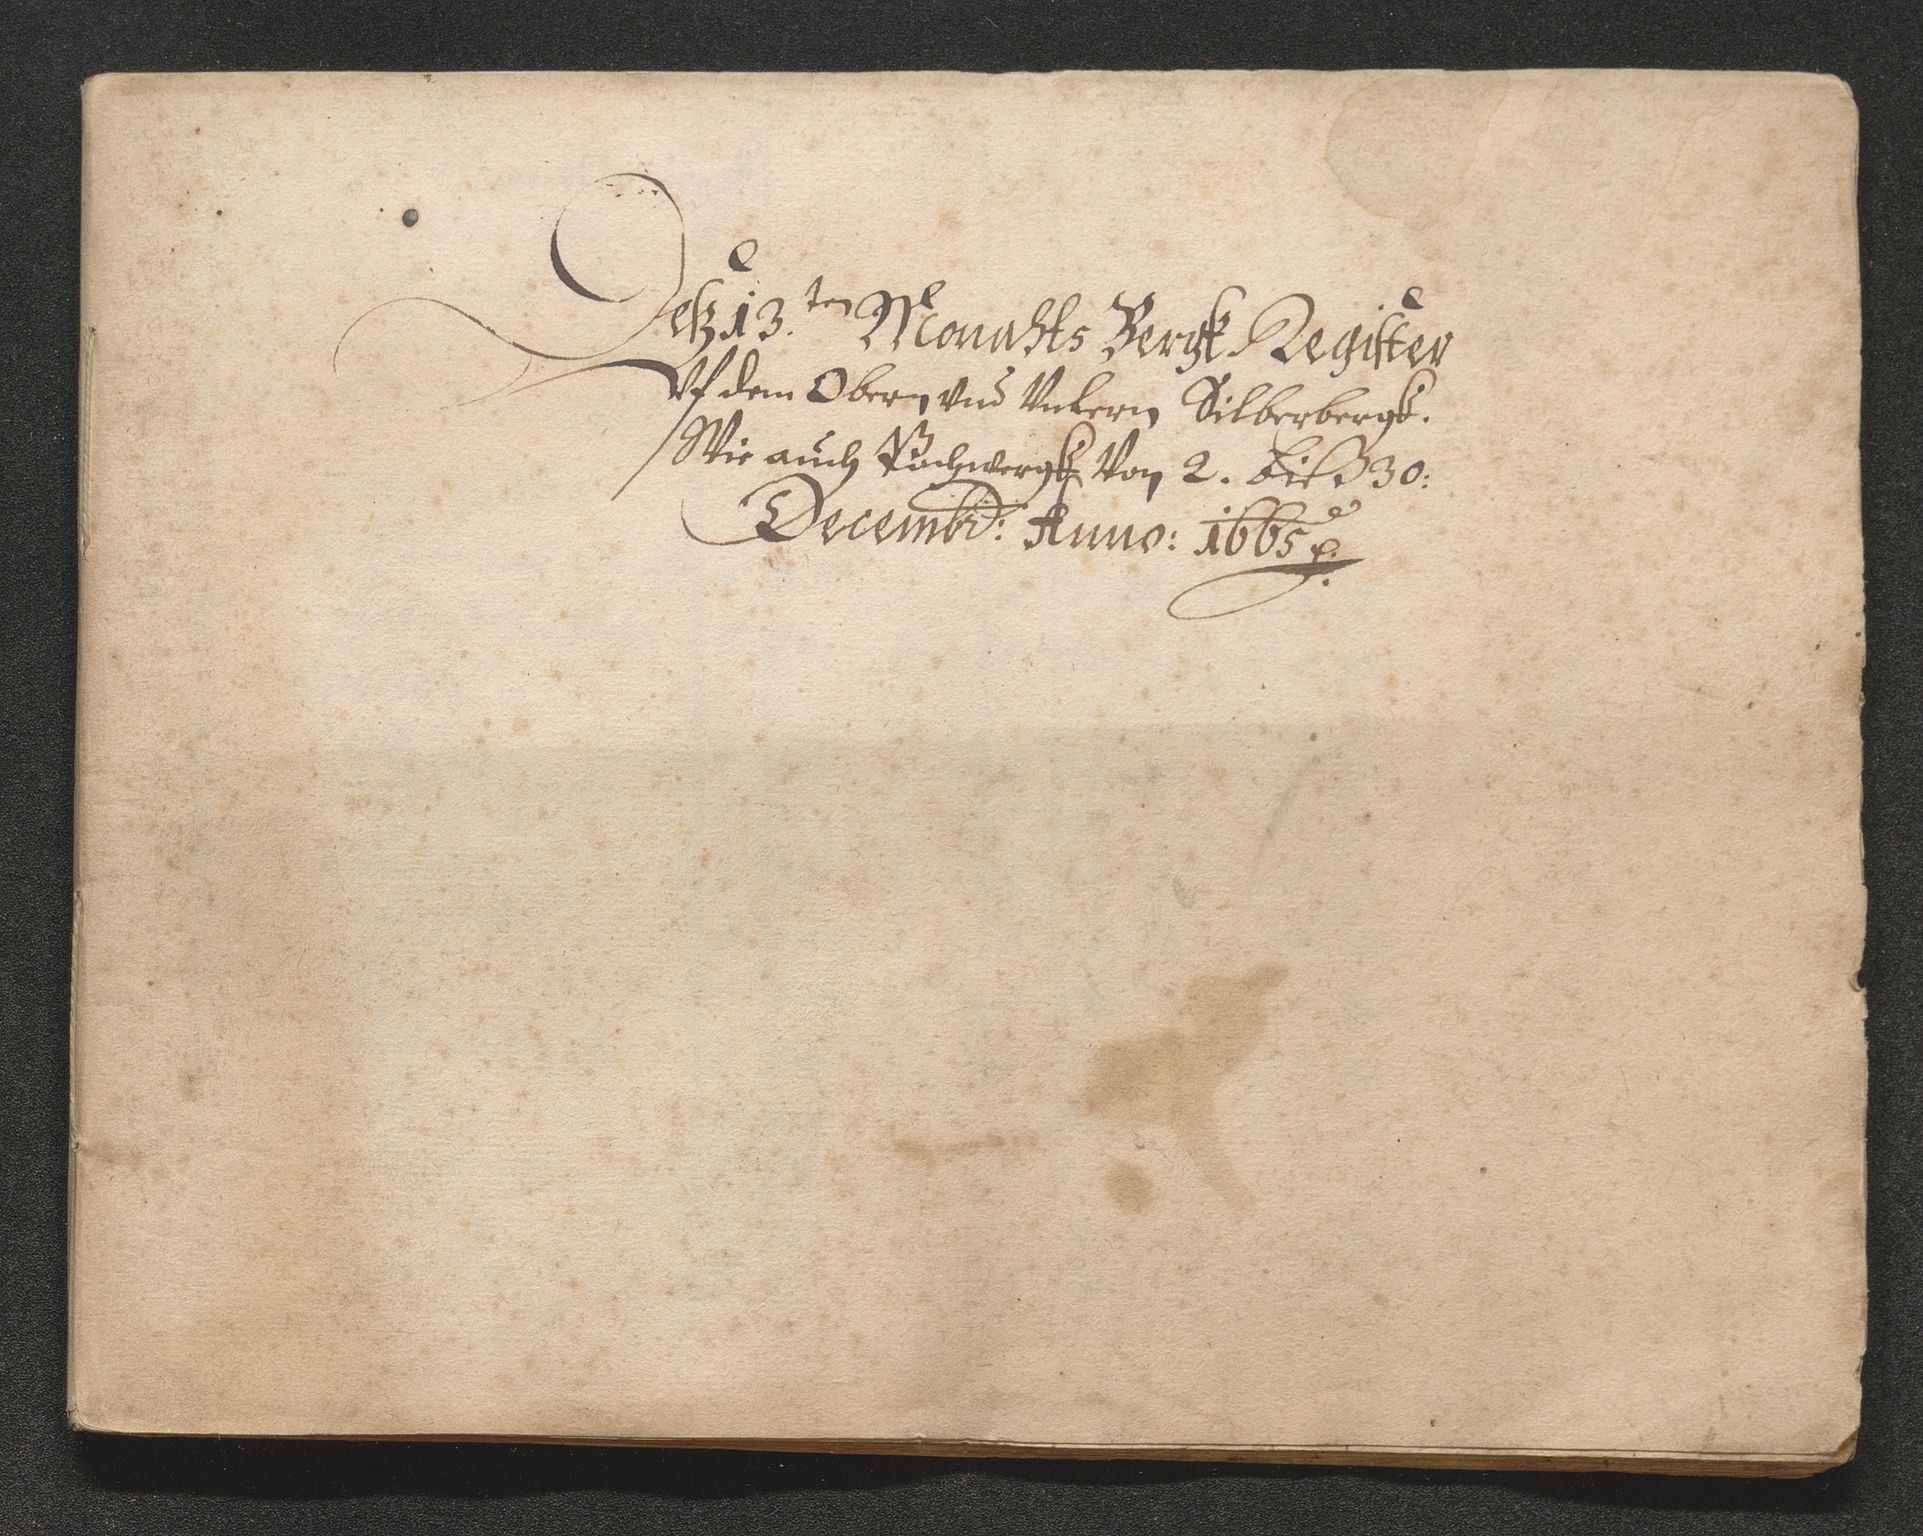 Deß 13.ten Monahts Bergk Register
Vf dem Obern vnd Vntern Silberbergk.
Wie auch Pochwergk Von 2. biß 30:
Decembr: Anno: 1665 p: